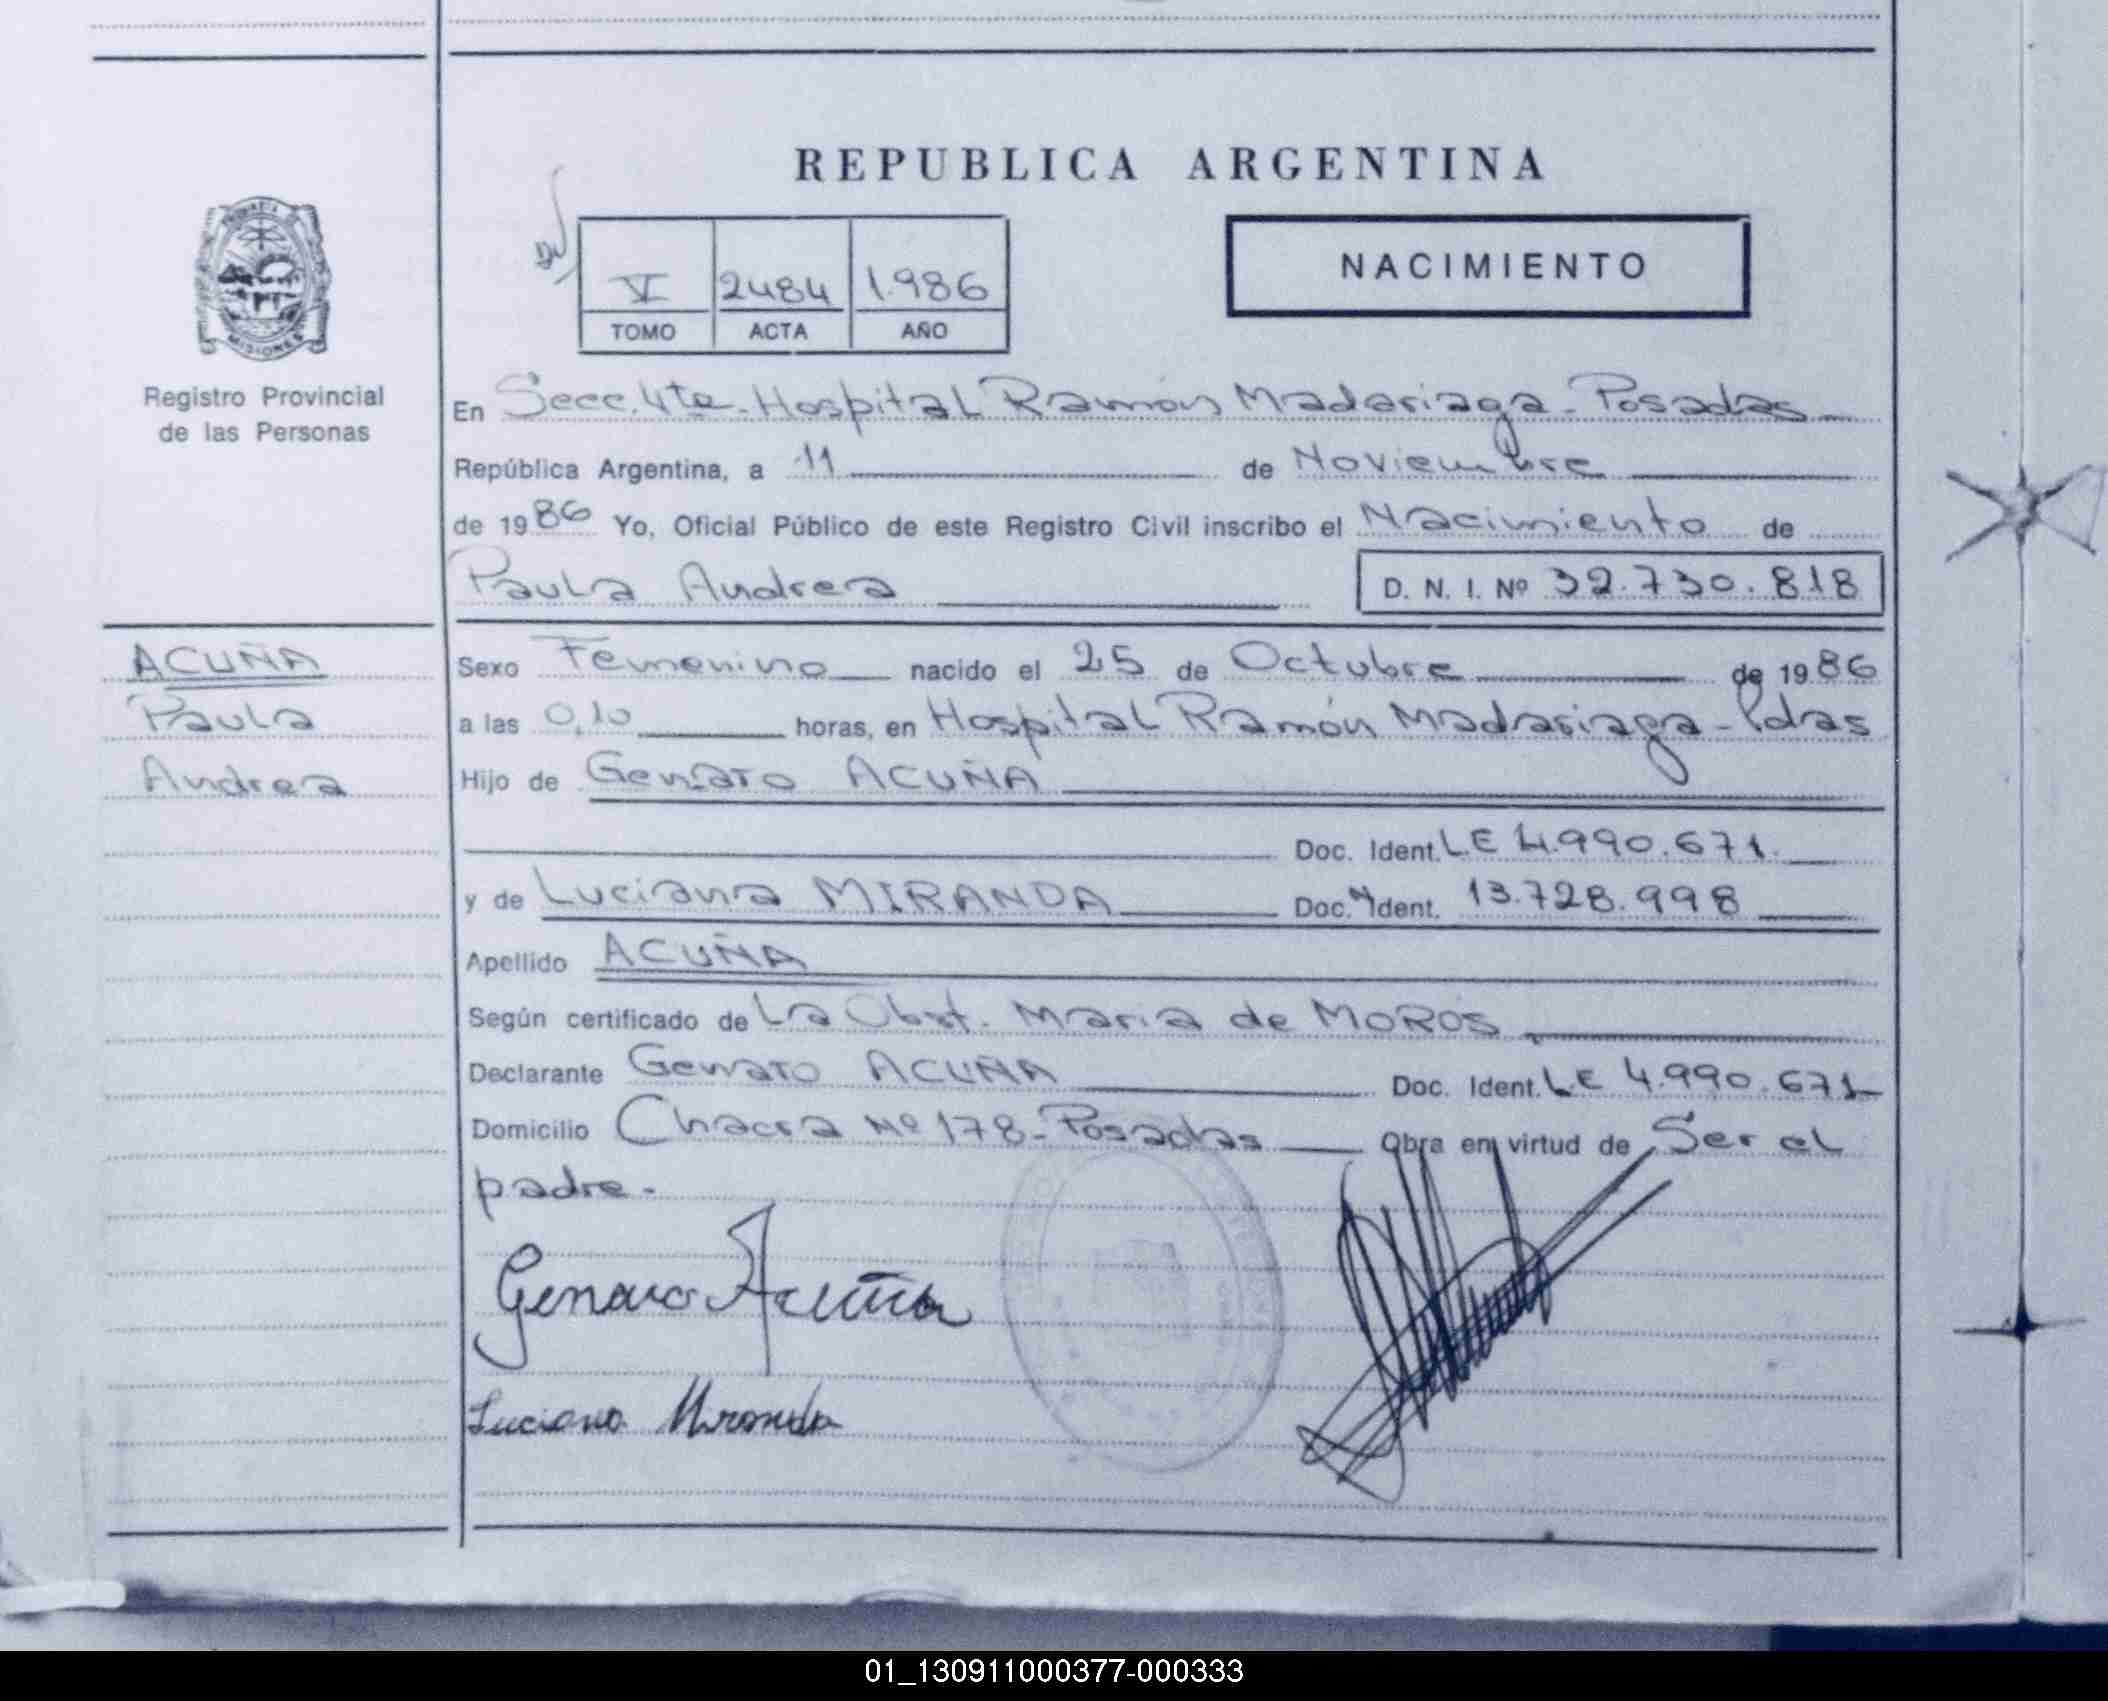 REPUBLICA ARGENTINA
PROVINCIA DE
MISIONES
Registro Provincial
de las Personas
VI 2484 1.986
TOMO ACTA AÑO
NACIMIENTO
En Secc. 4ta. Hospital Ramón Madariaga - Posadas
República Argentina, a 11 de Noviembre
de 1986 Yo, Oficial Público de este Registro Civil inscribo el Nacimiento de
Paula Andrea D. N. I. Nº 32.730.818
ACUÑA
Paula
Andrea
Sexo Femenino nacido el 25 de Octubre de 1986
a las 0,10 horas, en Hospital Ramón Madariaga - Pdas
Hijo de Genaro ACUÑA
Doc. Ident. L.E 4.990.671.
y de Luciana MIRANDA Doc. Ident. 13.728.998
Apellido ACUÑA
Según certificado de La Obst. Maria de MOROS
Declarante Genaro ACUÑA Doc. Ident. L.E 4.990.671
Domicilio Chacra Nº 178 - Posadas Obra en virtud de Ser el
padre.
Genaro Acuña
Luciana Miranda
01_130911000377-000333